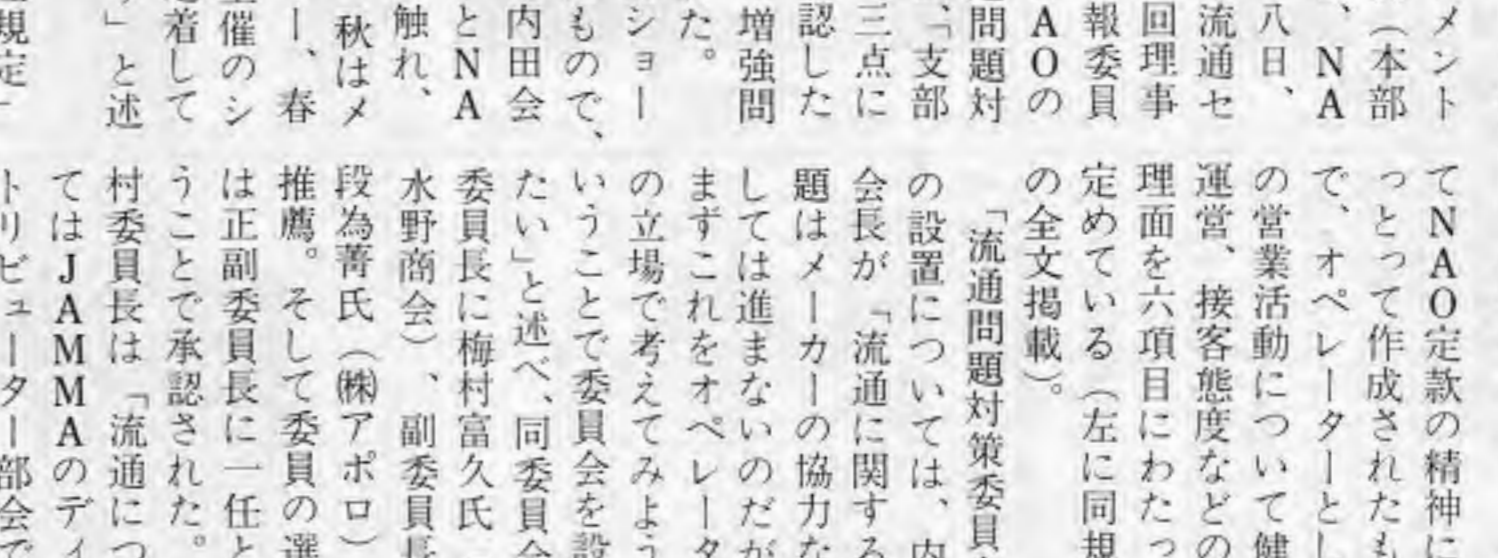 メント
（本部
、NA
八日、
流通セ
回理事
報委員
AOの
問題対
、「支部
三点に
認した
増強問
た。
ショー
もので、
内田会
とNA
触れ、
秋はメ
ー、春
催のシ
着して
」と述
規定」
てNAO定款の精神に
っとって作成されたも
で、オペレーターとし
の営業活動について健
運営、接客態度などの
理面を六項目にわたっ
定めている（左に同規
の全文掲載）。
「流通問題対策委員
の設置については、内
会長が「流通に関する
題はメーカーの協力な
しては進まないのだが
まずこれをオペレータ
の立場で考えてみよう
いうことで委員会を設
たい」と述べ、同委員会
委員長に梅村富久氏
水野商会）、副委員長
段為菁氏（㈱アポロ）
推薦。そして委員の選
は正副委員長に一任と
うことで承認された。
村委員長は「流通につ
てはJAMMAのディ
トリビューター部会で